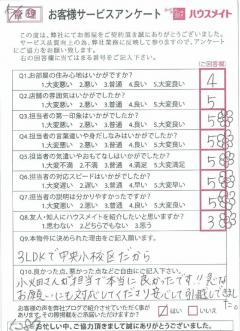 管理
お客様サービスアンケート
ハウスメイト
この度は、弊社にてお部屋をご契約頂き誠にありがとうございました。
サービス品質向上の為、弊社業務に反映して参りますので、アンケートに
ご協力をお願い致します。
右の回答欄に当てはまる番号をご記入下さい。
ご回答欄
Q1.お部屋の住み心地はいかがですか?
1.大変悪い 2.悪い 3.普通 4.良い 5.大変良い
4
Q2.店舗の雰囲気はいかがでしたか?
1.大変悪い 2.悪い 3.普通 4.良い 5.大変良い
5
Q3.担当者の第一印象はいかがでしたか?
1.大変悪い 2.悪い 3.普通 4.良い 5.大変良い
5
Q4.担当者の言葉遣いや身だしなみはいかがでしたか?
1.大変悪い 2.悪い 3.普通 4.良い 5.大変良い
5
Q5.担当者の気遣いやおもてなしはいかがでしたか?
1.大変不満 2.不満 3.普通 4.満足 5.大変満足
5
Q6.担当者の対応スピードはいかがでしたか?
1.大変遅い 2.遅い 3.普通 4.早い 5.大変早い
5
Q7.担当者の説明は分かりやすかったですか?
1.大変悪い 2.悪い 3.普通 4.良い 5.大変良い
5
Q8.友人・知人にハウスメイトを紹介したいと思いますか?
1.思わない 2.どちらでもない 3.思う
3
Q9.本物件に決められた理由をご記入願います。
3LDKで中央小校区だから
Q10.良かった点、悪かった点などご自由にご記入下さい。
小大田さんが担当で本当に良かったです!!急な
お願いにも対応していただき安心して引越しできまし
た。
お客様の声を弊社ブログで紹介させていただく事が
あります。その際掲載をご承諾いただけますか?
はい
いいえ
お忙しい中、ご協力頂きまして誠にありがとうございました。